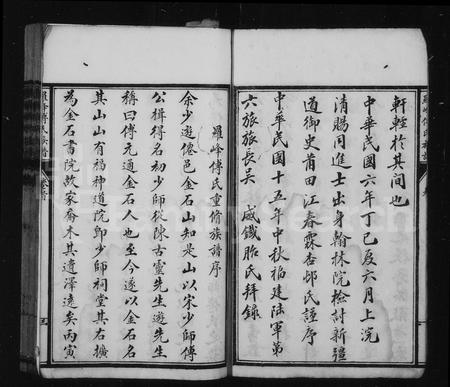 軒輊於其間也
中華民國六年丁巳夏六月上浣
清賜同進士出身翰林院檢討新疆
道御史莆田江春霖杏邨氏謹序
中華民國十五年中秋福建陸軍第
六旅旅長吳 威鐵胎氏拜錄
羅峰傅氏重脩族譜序
余少遊僊邑金石山知是山以宋少師傅
公楫得名初少師從陳古靈先生遊先生
稱曰傅元通金石人也至今遂以金石名
其山山有福神道院即少師祠堂其右擴
為金石書院故家喬木其遺澤遠矣丙寅